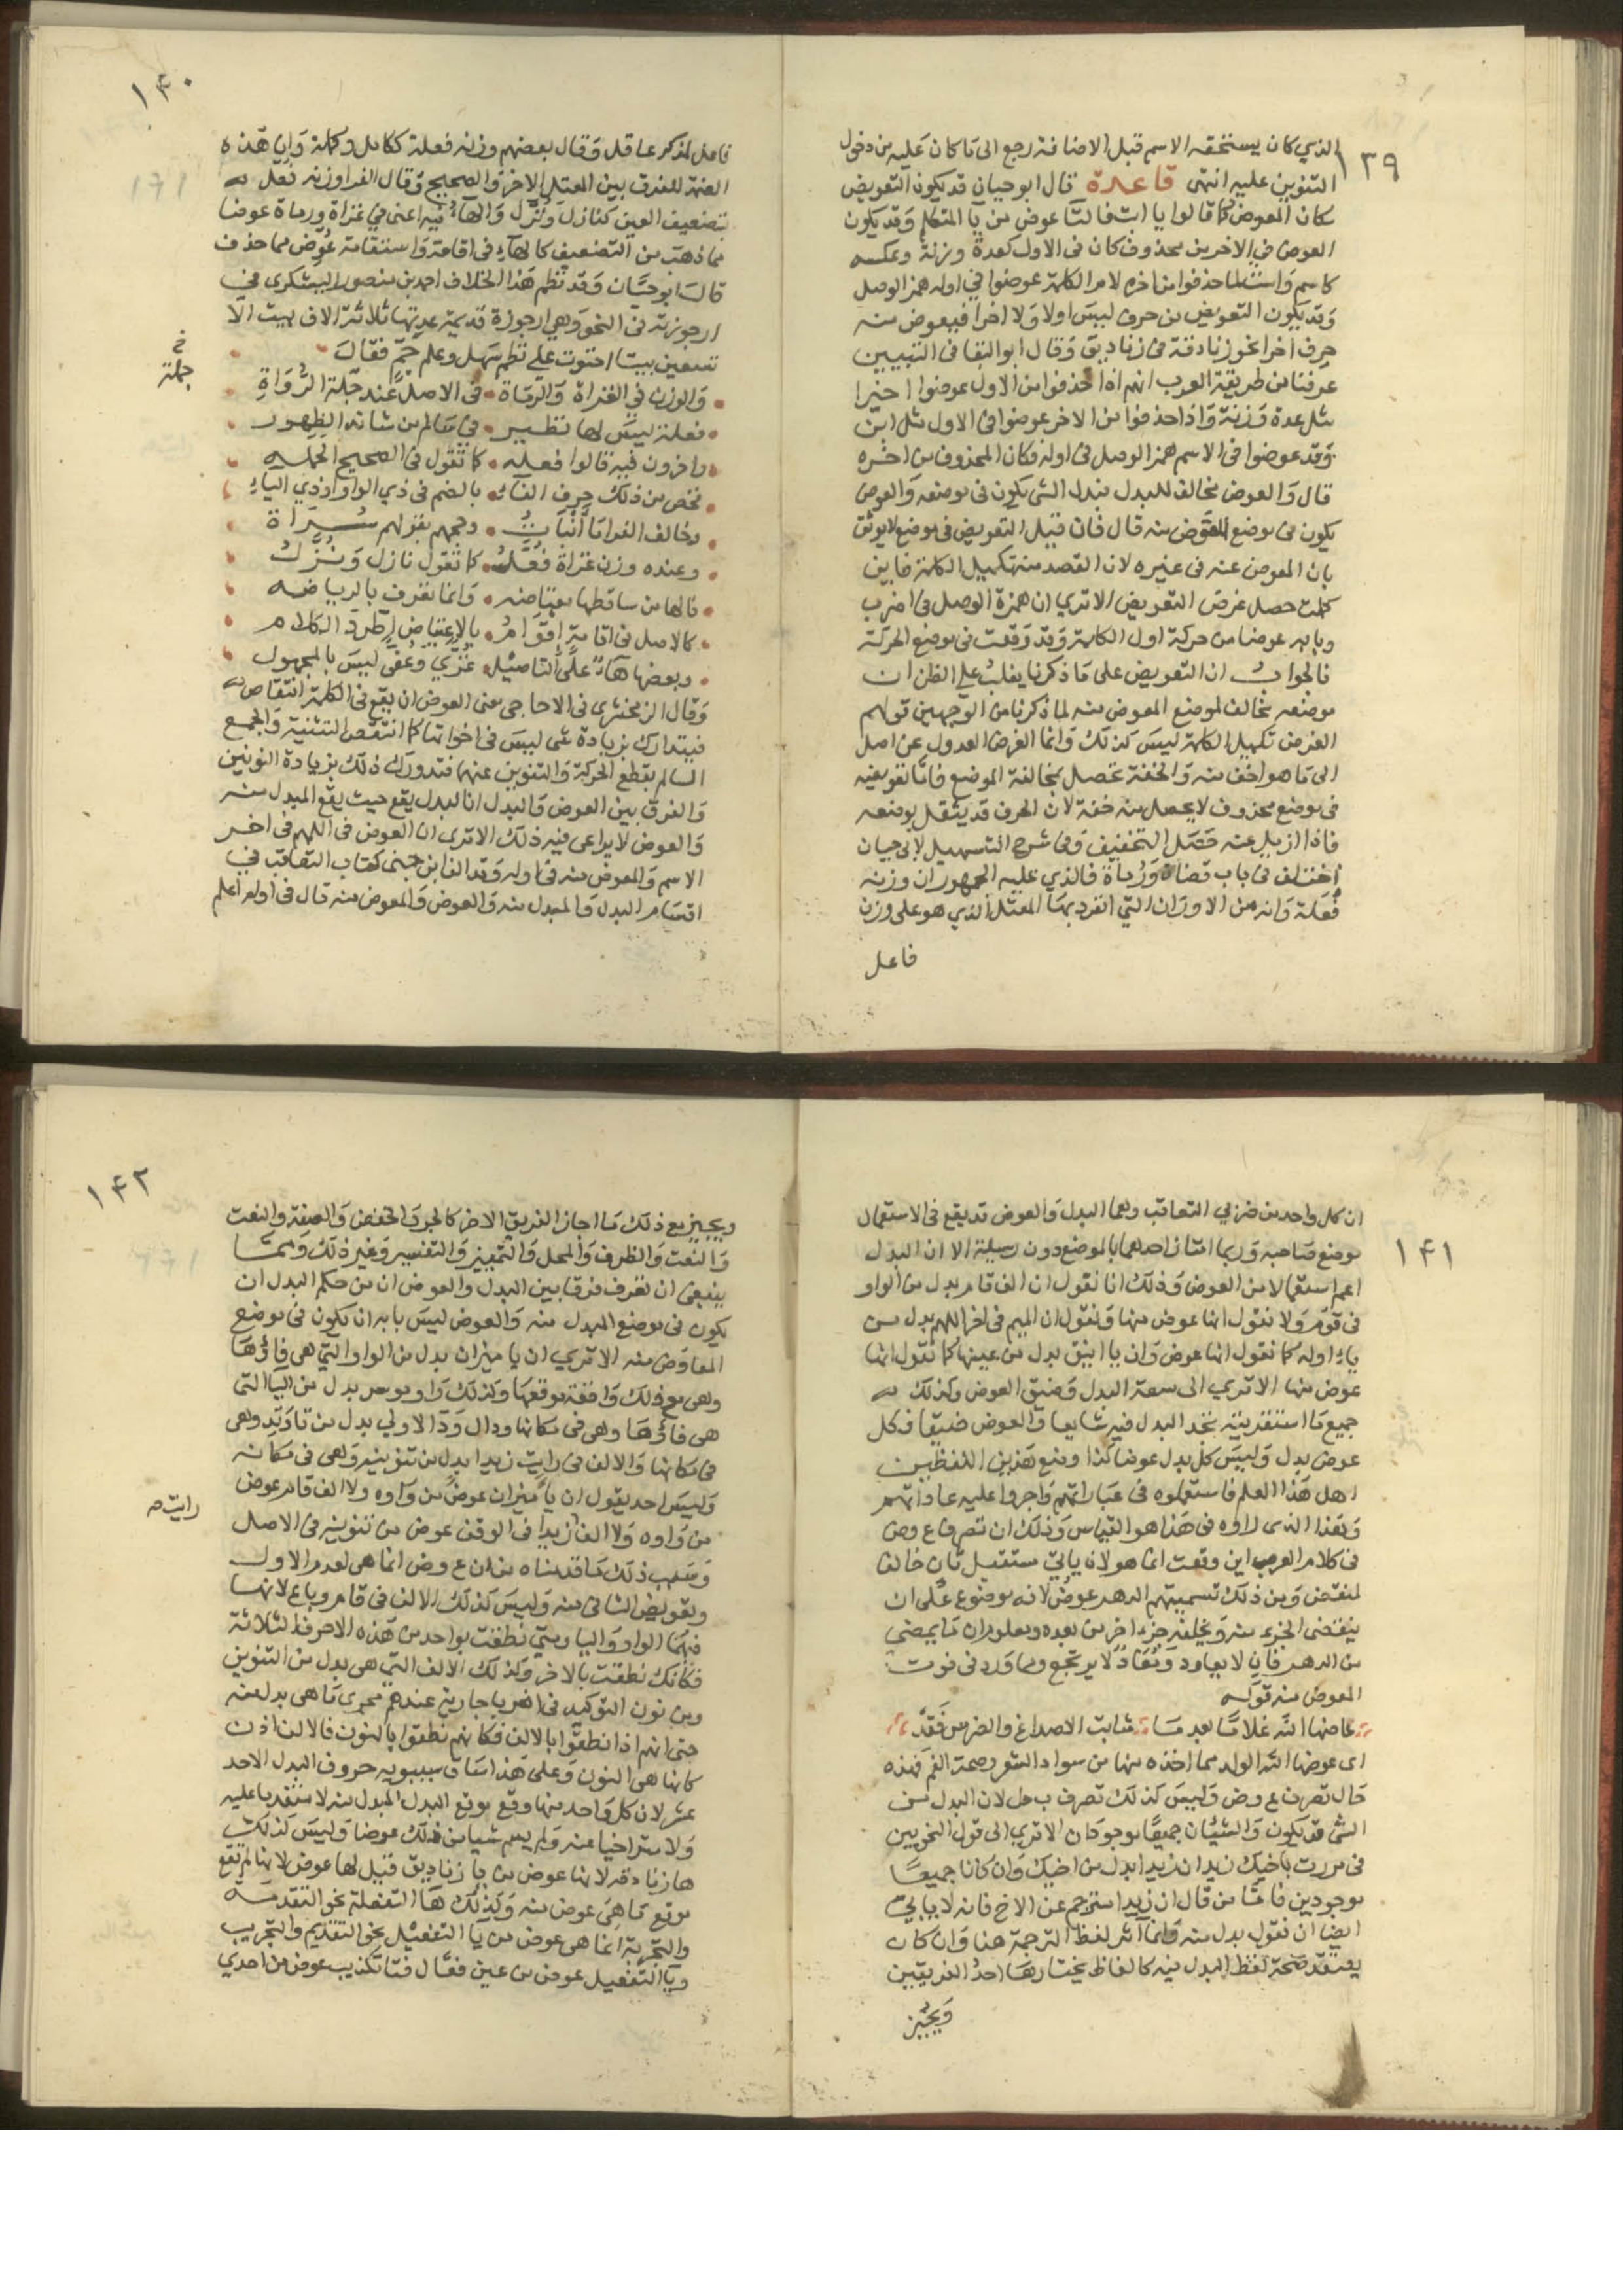 ١٣٩
الذي كان يستحقه الاسم قبل الاضافة رجع الى ما كان عليه من دخول
التنوين عليه انتهى قاعدة قال ابو حيان قد يكون التعويض
مكان المعوض كما قالوا يا ابت فالتا عوض من يآ المتكلم وقد يكون
العوض في الاخر من محذوف كان في الاول كعدة وزنة وعكسه
كاسم واست لما حذفوا من اخره لام الكلمة عوضوا في اوله همز الوصل
وقد يكون التعويض من حرف ليس اولا ولا اخرا فيعوض منه
حرف اخر نحو زنادقة في زناديق وقال ابو البقا في التبيين
عرفنا من طريقة العرب انهم اذا حذفوا من الاول عوضوا اخيرا
مثل عدة وزنة واذا حذفوا من الاخر عوضوا في الاول مثل ابن
وقد عوضوا في الاسم همز الوصل في اوله فكان المحذوف من اخره
قال والعوض مخالف للبدل فبدل الشي يكون في موضعه والعوض
يكون في موضع المعوض منه قال فان قيل التعويض في موضع لا يوثق
بان المعوض عنه في غيره لان القصد منه تكميل الكلمة فاين
كملت حصل غرض التعويض الا تري ان همزة الوصل في اضرب
وبابه عوضا من حركة اول الكلمة وقد وقعت في موضع الحركة
فالجواب ان التعويض على ما ذكرنا يغلب على الظن ان
موضعه مخالف لموضع المعوض منه لما ذكرنا من الوجهين قولهم
الغرض تكميل الكلمة ليس كذلك وانما الغرض العدول عن اصل
الى ما هو اخف منه والخفة تحصل بمخالفة الموضع فاما تعويضه
في موضع محذوف لا يحصل منه خفة لان الحرف قد يثقل بموضعه
فاذا ازيل عنه حصل التخفيف وفي شرح التسهيل لابي حيان
اختلف في باب قضاة ورماة فالذي عليه الجمهور ان وزنه
فعلة وانه من الاوزان التي انفرد بها المعتل الذي هو على وزن
فاعل
١٤٠
فاعل لمذكر عاقل وقال بعضهم وزنه فعلة ككامل وكملة وان هذه
الضمة للفرق بين المعتل الاخر والصحيح وقال الفرا وزنه فعل
بتضعيف العين كنازل ونزل والهآء فيه اعني في غزاة ورماة عوض
مما ذهب من التضعيف كالهآء في اقامة واستقامة عوض مما حذف
قال ابو حيان وقد نظم هذا الخلاف احمد بن منصور اليشكري في
ارجوزته في النحو وهي ارجوزة قديمة عدتها ثلاثة الاف بيت الا
تسعين بيتا احتوت على نظم سهل وعلم جم فقال
والوزن في الغزاة والرماة في الاصل عند جلة الرواة
خ
جملة
فعلة ليس لها نظير في سالم من شانه الظهور
واخرون فيه قالوا فعله كما تقول في الصحيح الحمله
فخص من ذلك حرف الفآء بالضم في ذي الواو او ذي اليآء
وخالف الفرا ما انبات وحجهم بقولهم سراة
وعنده وزن غزاة فعل كما تقول نازل ونزل
فالها من ساقطها معتاضه وانما تعرف بالرياضه
كالاصل في اقامة اقوام بالاعتياض اطرد الكلام
وبعضها هآء على التاصيل غزي وعفى ليس بالمجهول
وقال الزمخشري في الاحاجي معنى العوض ان يقع في الكلمة انتقاص
فيتدارك بزيادة شي ليس في اخواتها كما انتقص التثنية والجمع
السالم بقطع الحركة والتنوين عنهما فتدورك ذلك بزيادة النونين
والفرق بين العوض والبدل ان البدل يقع حيث يقع المبدل منه
والعوض لا يراعى فيه ذلك الا ترى ان العوض في اللهم في اخر
الاسم والمعوض منه في اوله وقد الف ابن جني كتاب التعاقب في
اقسام البدل والمبدل منه والعوض والمعوض منه قال في اوله اعلم
١٤١
ان كل واحد من ضربي التعاقب وهما البدل والعوض قد يقع في الاستعمال
موضع صاحبه وربما امتاز احدهما بالموضع دون رسيله الا ان البدل
اعم استعمالا من العوض وذلك انا نقول ان الف قام بدل من الواو
في قوم ولا نقول انها عوض منها ونقول ان الميم في اخر اللهم بدل من
ياء اوله كما نقول انها عوض وان يا اينق بدل من عينها كما نقول انها
عوض منها الا تري الى سعة البدل وضيق العوض وكذلك
جميع ما استقريته تجد البدل فيه شايعا والعوض ضيقا فكل
عوض بدل وليس كل بدل عوضا كذا وضع هذين اللفظين
اهل هذا العلم فاستعملوه في عباراتهم واجروا عليه عاداتهم
وهذا الذي راوه في هذا هو القياس وذلك ان تصرف ع وض
في كلام العرب اين وقعت انما هو لان ياتي مستقبل ثان خالفا
لمنقض ومن ذلك تسميتهم الدهر عوض لانه موضوع على ان
ينقضي الجزء منه ويخلفه جزء اخر من بعده ومعلوم ان ما يمضي
من الدهر فان لا يعاود ومعاد لا يرتجع ومما ورد في فوت
المعوض منه قوله
عاضها الله غلاما بعد ما شابت الاصداغ والضرس نقد
اى عوضها الله الولد مما اخذه منها من سواد الشعر وصحة الفم فهذه
حال تصرف ع وض وليس كذلك تصرف ب د ل لان البدل من
الشي قد يكون والشيئان جميعا موجودان الا تري الى قول النحويين
في مررت باخيك زيد ان زيدا بدل من اخيك وان كانا جميعا
موجودين فاما من قال ان زيدا مترجم عن الاخ فانه لا يابى
ايضا ان نقول بدل منه وانما آثر لفظ الترجمة هنا وان كان
يعتقد صحة لفظ البدل فيه كالفاظ يختارها احد الفريقين
ويجيز
١٤٢
ويجيز مع ذلك ما اجاز الفريق الاخر كالجر والخفض والصفة والنعت
والنعت والظرف والمحل والتمييز والتفسير وغير ذلك ومما
ينبغي ان تعرف فرقا بين البدل والعوض ان من حكم البدل ان
يكون في موضع المبدل منه والعوض ليس بابه ان يكون في موضع
المعاوض منه الا تري ان يا ميزان بدل من الواو التي هي فاؤها
وهي مع ذلك واقعة موقعها وكذلك واو موسر بدل من اليا التى
هي فاؤها وهى في مكانها ودال ود الاولي بدل من تا وتد وهى
في مكانها والالف في رايت زيدا بدل من تنوينه وهى في مكانه
وليس احد يقول ان يا ميزان عوض من واوه ولا الف قام عوض
من واوه ولا الف زيدا في الوقف عوض من تنوينه في الاصل
رايت صـ
وسبب ذلك ما قدمناه من ان ع وض انما هى لعدم الاول
وتعويض الثاني منه وليس كذلك الالف في قام وباع لانها
فيهما الواو واليا ومتى نطقت بواحد من هذه الاحرف الثلاثة
فكانك نطقت بالاخر وكذلك الالف التي هى بدل من التنوين
ومن نون التوكيد في اضربا جارية عندهم مجرى ما هى بدل منه
حتى انهم اذا نطقوا بالالف فكانهم نطقوا بالنون فالالف اذن
كانها هى النون وعلى هذا ساق سيبويه حروف البدل الاحد
عشر لان كل واحد منها وقع موقع البدل المبدل منه لا متقدما عليه
ولا متراخيا عنه ولم يسم شيا من ذلك عوضا وليس كذلك
ها زنادقة لانها عوض من يا زناديق قيل لها عوض لانها لم تقع
موقع ما هي عوض منه وكذلك ها التفعلة نحو التقدمة
والتجربة انما هى عوض من يا التفعيل نحو التقديم والتجريب
ويا التفعيل عوض من عين فعال فتا تكذيب عوض من احدي